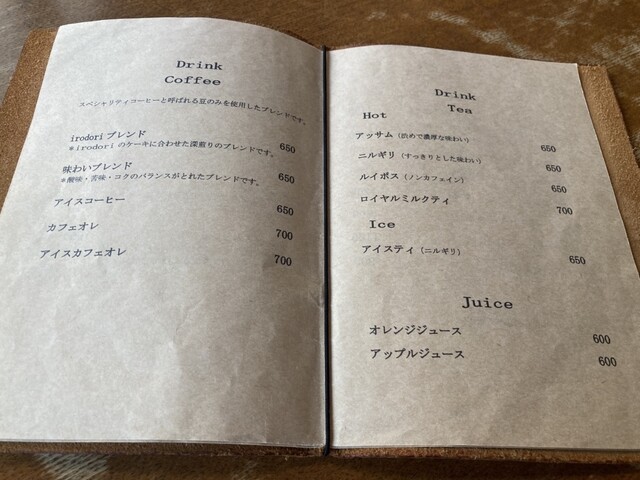 Drink
Coffee
スペシャリティコーヒーと呼ばれる豆のみを使用したブレンドです。
irodori ブレンド 650
＊irodori のケーキに合わせた深煎りのブレンドです。
味わいブレンド 650
＊酸味・苦味・コクのバランスがとれたブレンドです。
アイスコーヒー 650
カフェオレ 700
アイスカフェオレ 700
Drink
Tea
Hot
アッサム（渋めで濃厚な味わい） 650
ニルギリ（すっきりとした味わい） 650
ルイボス（ノンカフェイン） 650
ロイヤルミルクティ 700
Ice
アイスティ（ニルギリ） 650
Juice
オレンジジュース 600
アップルジュース 600